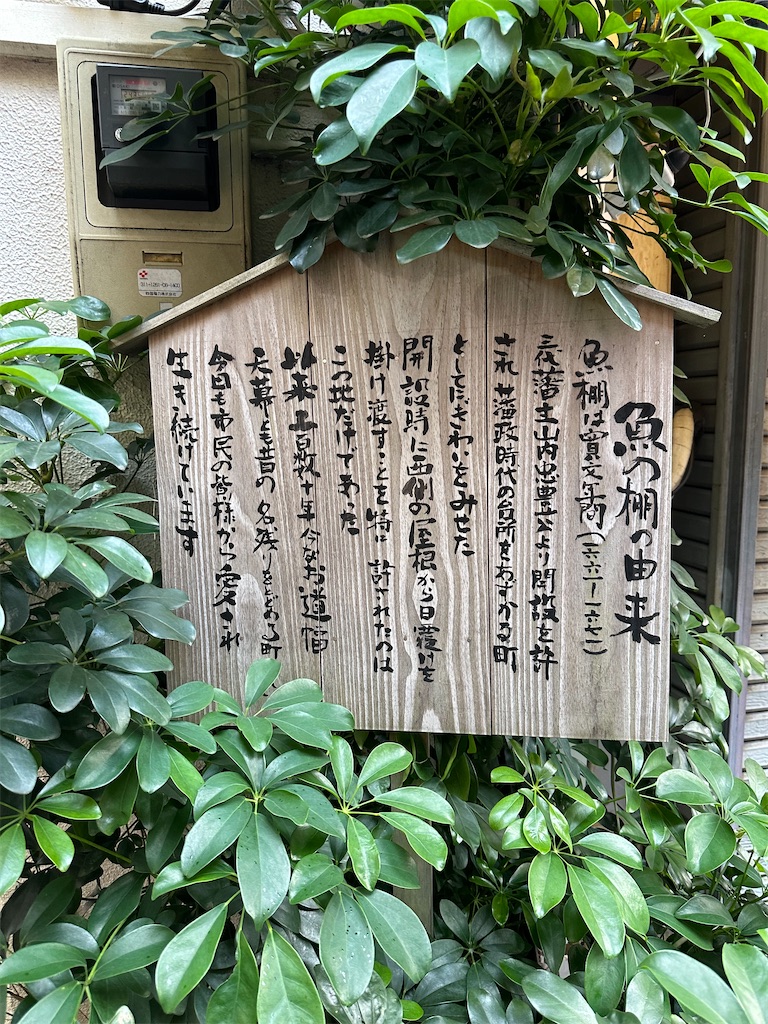 魚の棚の由来
魚棚は寛文年間(一六六一–一六七二)
三代藩主山内忠豊公より開設を許
され 藩政時代の台所をあずかる町
としてにぎわいをみせた
開設時に西側の屋根から日覆いを
掛け渡すことを特に許されたのは
この地だけであった
以来三百数十年 今なお道幅
天幕とも昔の名残りをとどめる町
今日も市民の皆様から愛され
生き続けています